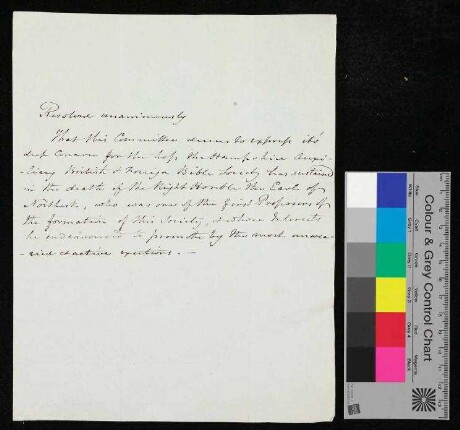 Resolved unanimously
That this Committee desires to express its
deep concern for the loss the Hampshire Auxi-
liary British & Foreign Bible Society has sustained
in the death of the Right Honble the Earl of
Northesk, who was one of the first Proposers of
the formation of this Society, & whose Interests
he endeavoured to promote by the most unwea-
-ried & active exertions. —
Colour & Grey Control Chart
Blue Cyan Green Yellow Red Magenta
White Grey 1 Grey 2 Grey 3 Grey 4 Black